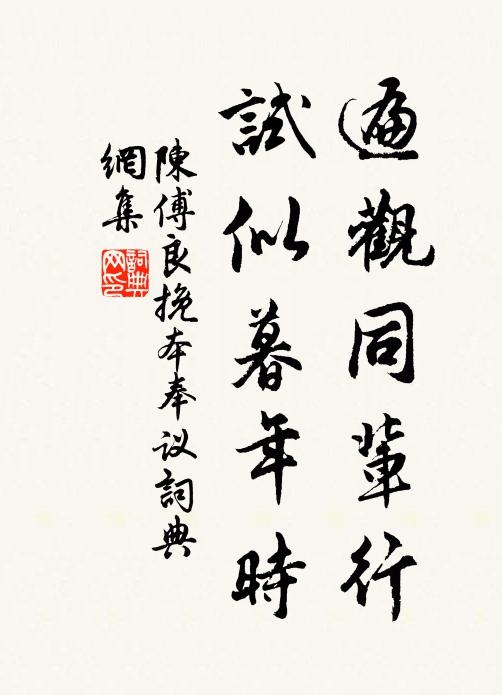 遍觀同輩行
試似暮年時
陳傅良挽本奉议詞典
網集
詞典
网印